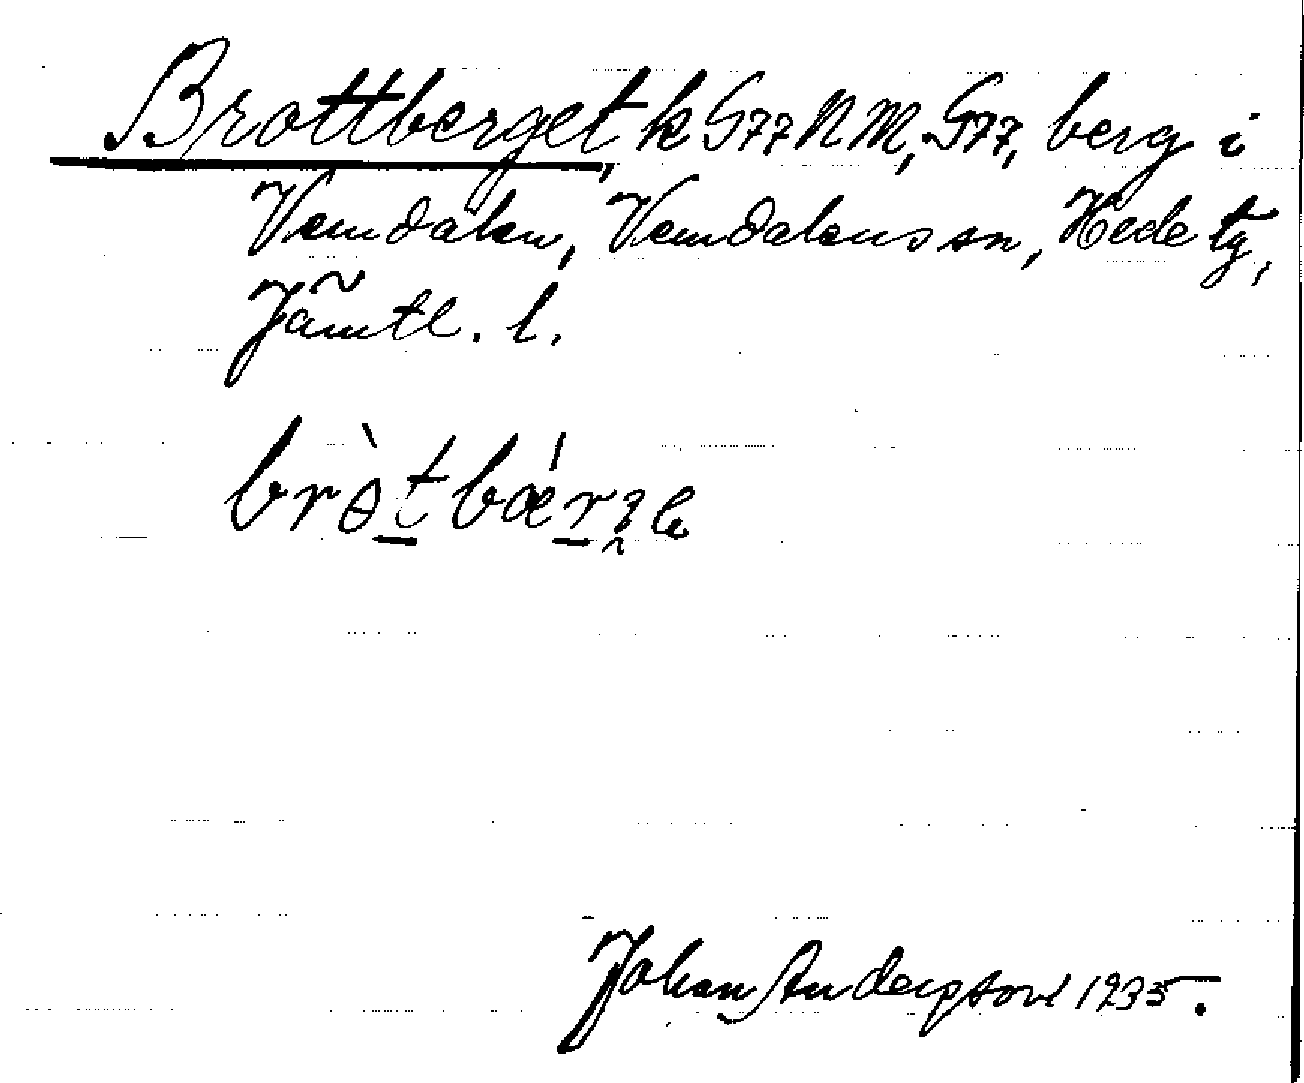 Brottberget, k G77 N M, G77, berg i
Vemdalen, Vemdalens sn, Hede tg,
Jämtl. l.
bròtbǽrʒe
Johan Anderpson 1935.